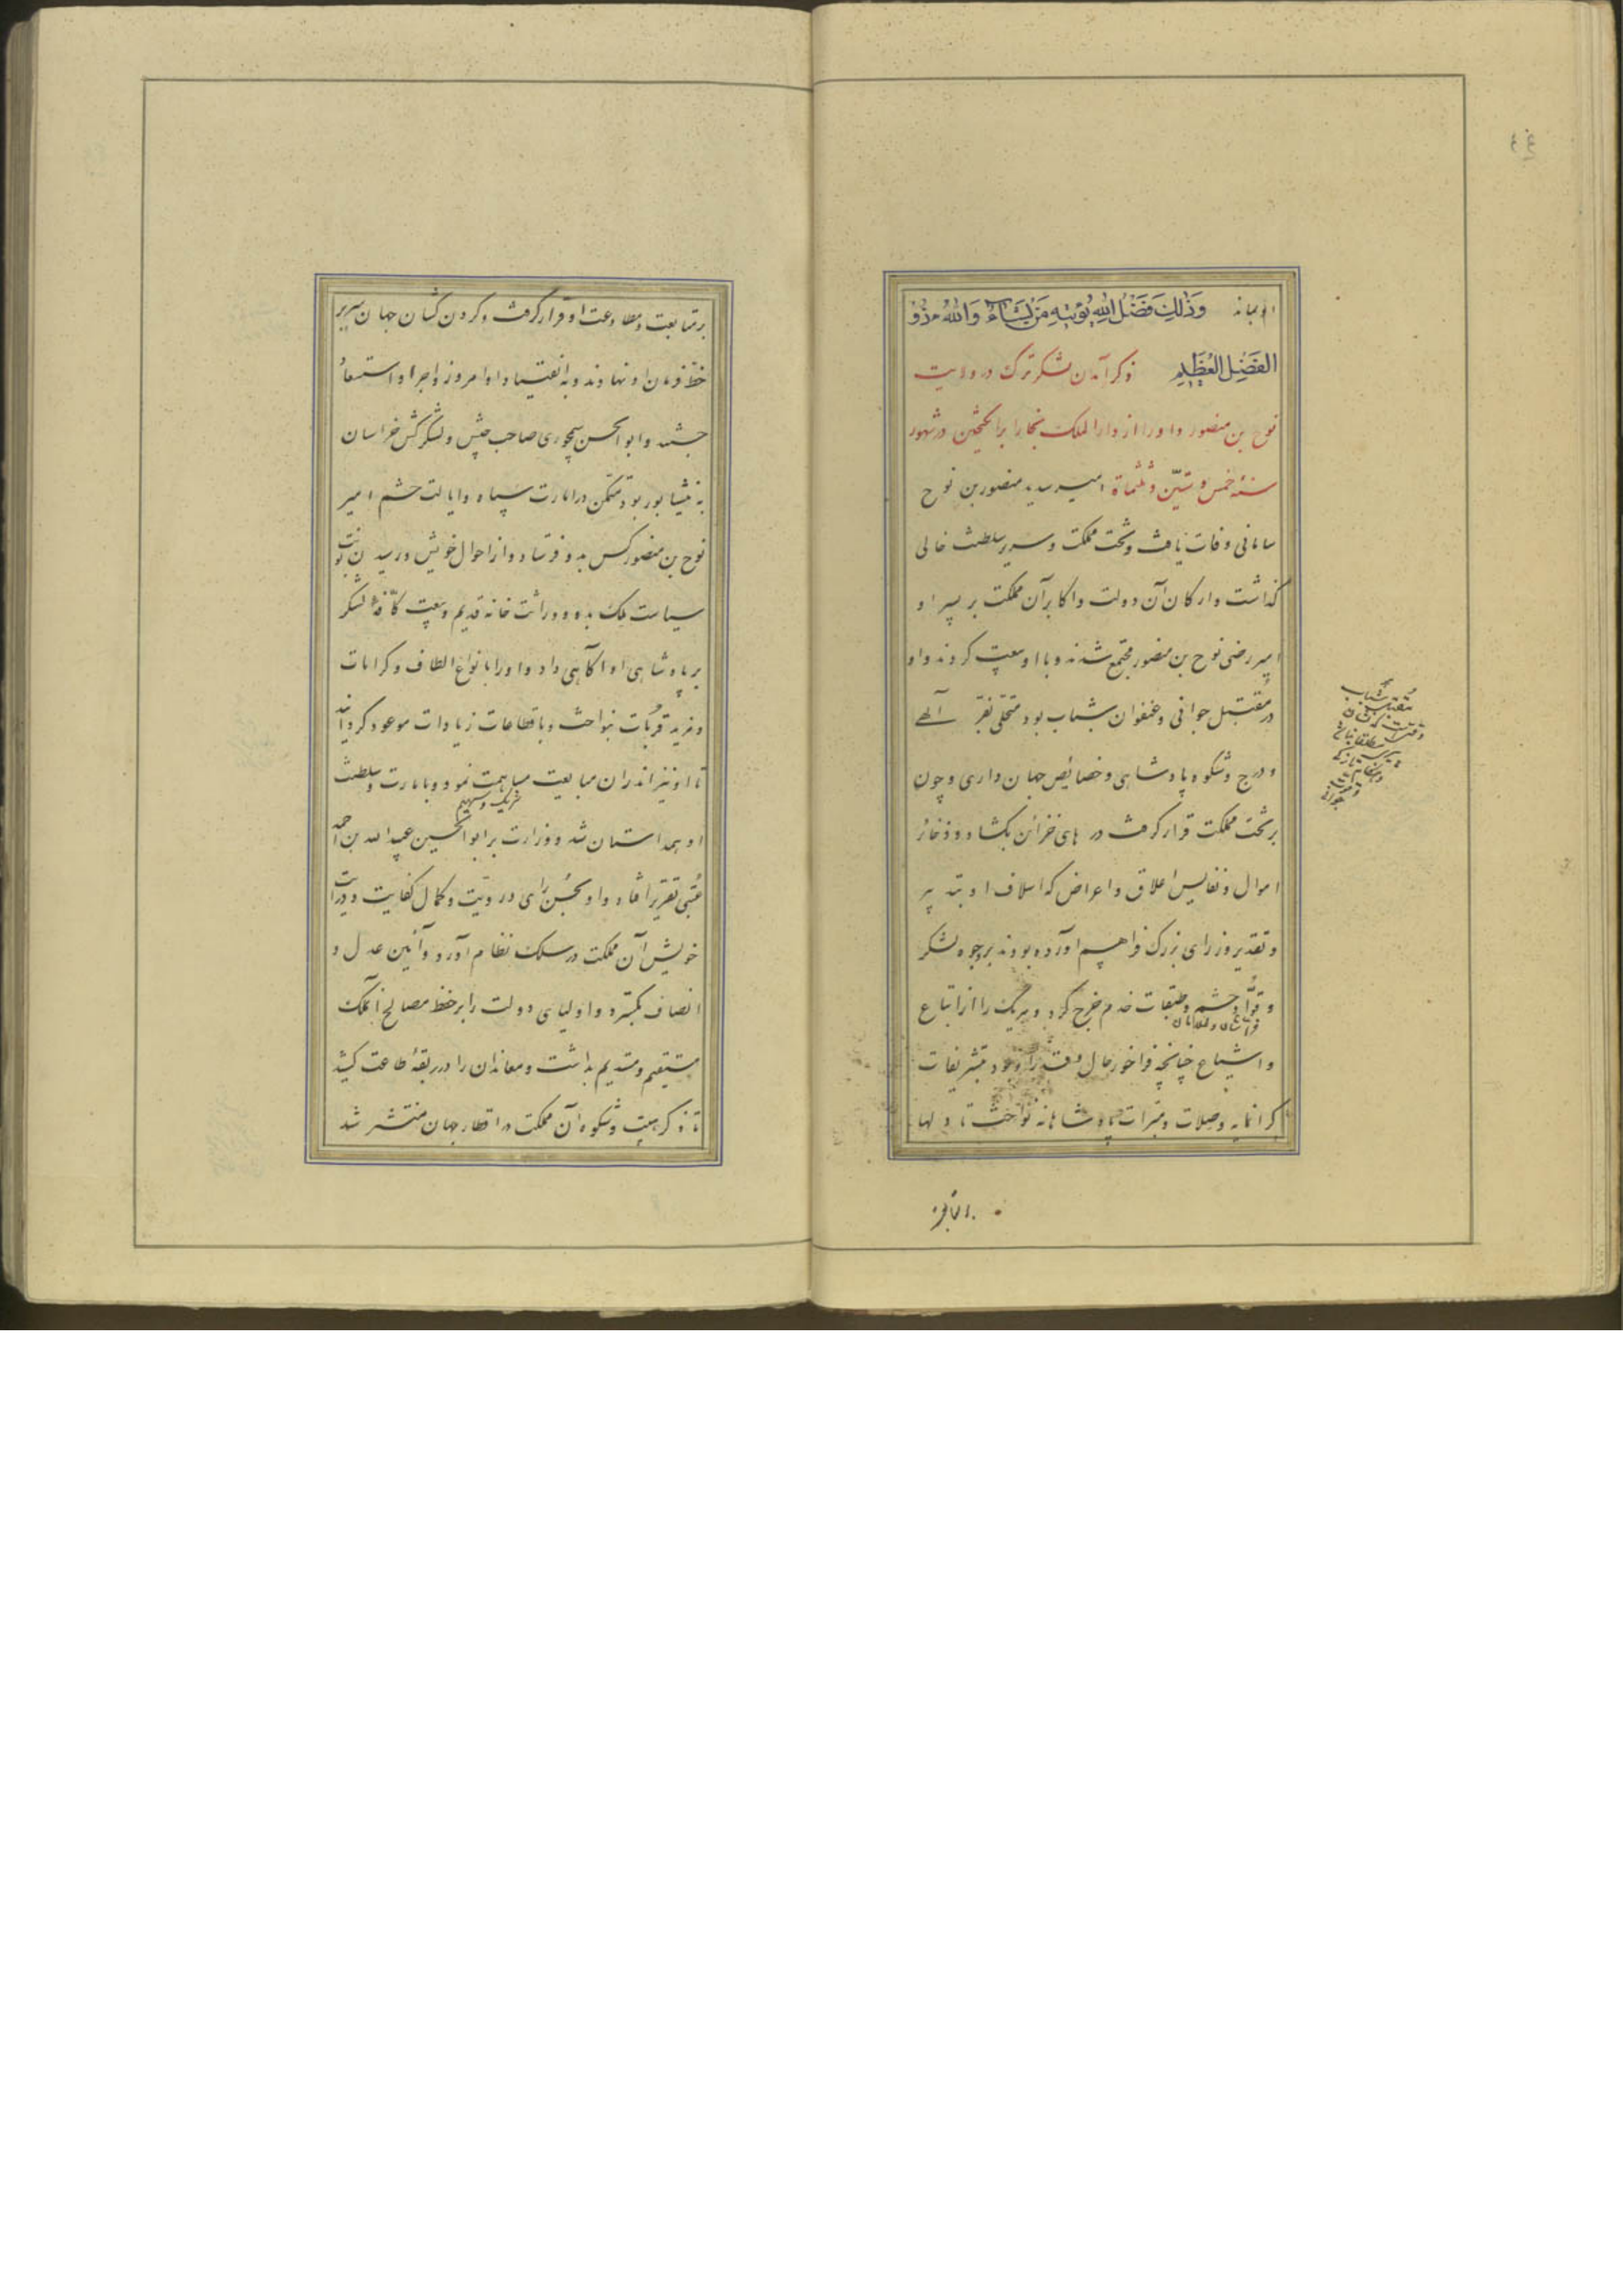 او بماند وَذٰلِكَ فَضْلُ اللهِ يُؤتيهِ مَنْ يَشَاءُ وَاللهُ ذُو
الفَضْلِ العَظِيمِ ذکر آمدن لشکر ترک در ولایت
نوح بن منصور و او را از دار الملک بخارا برانگیختن در شهور
سنهٔ خمس و ستّین و ثلثماة امیر سدید منصور بن نوح
سامانی وفات یافت و تخت مملکت و سریر سلطنت خالی
گذاشت و ارکان آن دولت و اکابر آن مملکت بر پسر او
امیر رضی نوح بن منصور مجتمع شدند و با او بیعت کردند و او
در مُقتَبل جوانی و عنفوان شباب بود متحلّی بفرّ آلهی
و ورج و شکوه پادشاهی و خصائص جهان داری و چون
بر تخت مملکت قرار گرفت در های خزائن بگشاد و ذخائر
اموال و نفایس اعلاق و اعراض که اسلاف او بتدبیر
و تقدیر وزرای بزرگ فراهم آورده بودند بر وجوه لشکر
و قوّاد حشم و طبقات خدم خرج کرد و هر یک را از اتباع
و اشیاع چنانچه فراخور حال و قدر او بود بتشریفات
گرانمایه و صلات و مبرّات پادشاهانه نواخت تا دلها
بر متابعت و مطاوعت او قرار گرفت و گردن کشان جهان سر بر
خطّ فرمان او نهادند و به انقیاد او امروز واجر او استسعاد
جستند و ابو الحسن سیمجوری صاحب جیش و لشکر کش خراسان
به نیشابور بود متمکن در امارت سپاه و ایالت حشم امیر
نوح بن منصور کس بدو فرستاد و از احوال خویش و رسیدن نوبت
سیاست ملک بدو و وراثت خانه قدیم و بیعت کافّهٔ لشکر
بر پادشاهی او آگاهی داد و او را بانواع الطاف و کرامات
و مزید قربات بنواخت و باقطاعات زیادات موعود گردانید
تا او نیز اندران مبایعت مساهمت نمود و بامارت و سلطنت
شریک و سهیم
او همداستان شد و وزارت بر ابو الحسین عبید الله بن احمد
عُتبی تقریر افتاد و او بحُسن رای و رویّت و کمال کفایت و درایت
خویش آن مملکت در سلک نظام آورد و آئین عدل و
انصاف بگسترد و اولیای دولت را بر حفظ مصالح آن ملک
مستقیم و مستدیم بداشت و معاندان را در ربقهٔ طاعت کشید
تا ذکر هیبت و شکوه آن مملکت در اقطار جهان منتشر شد